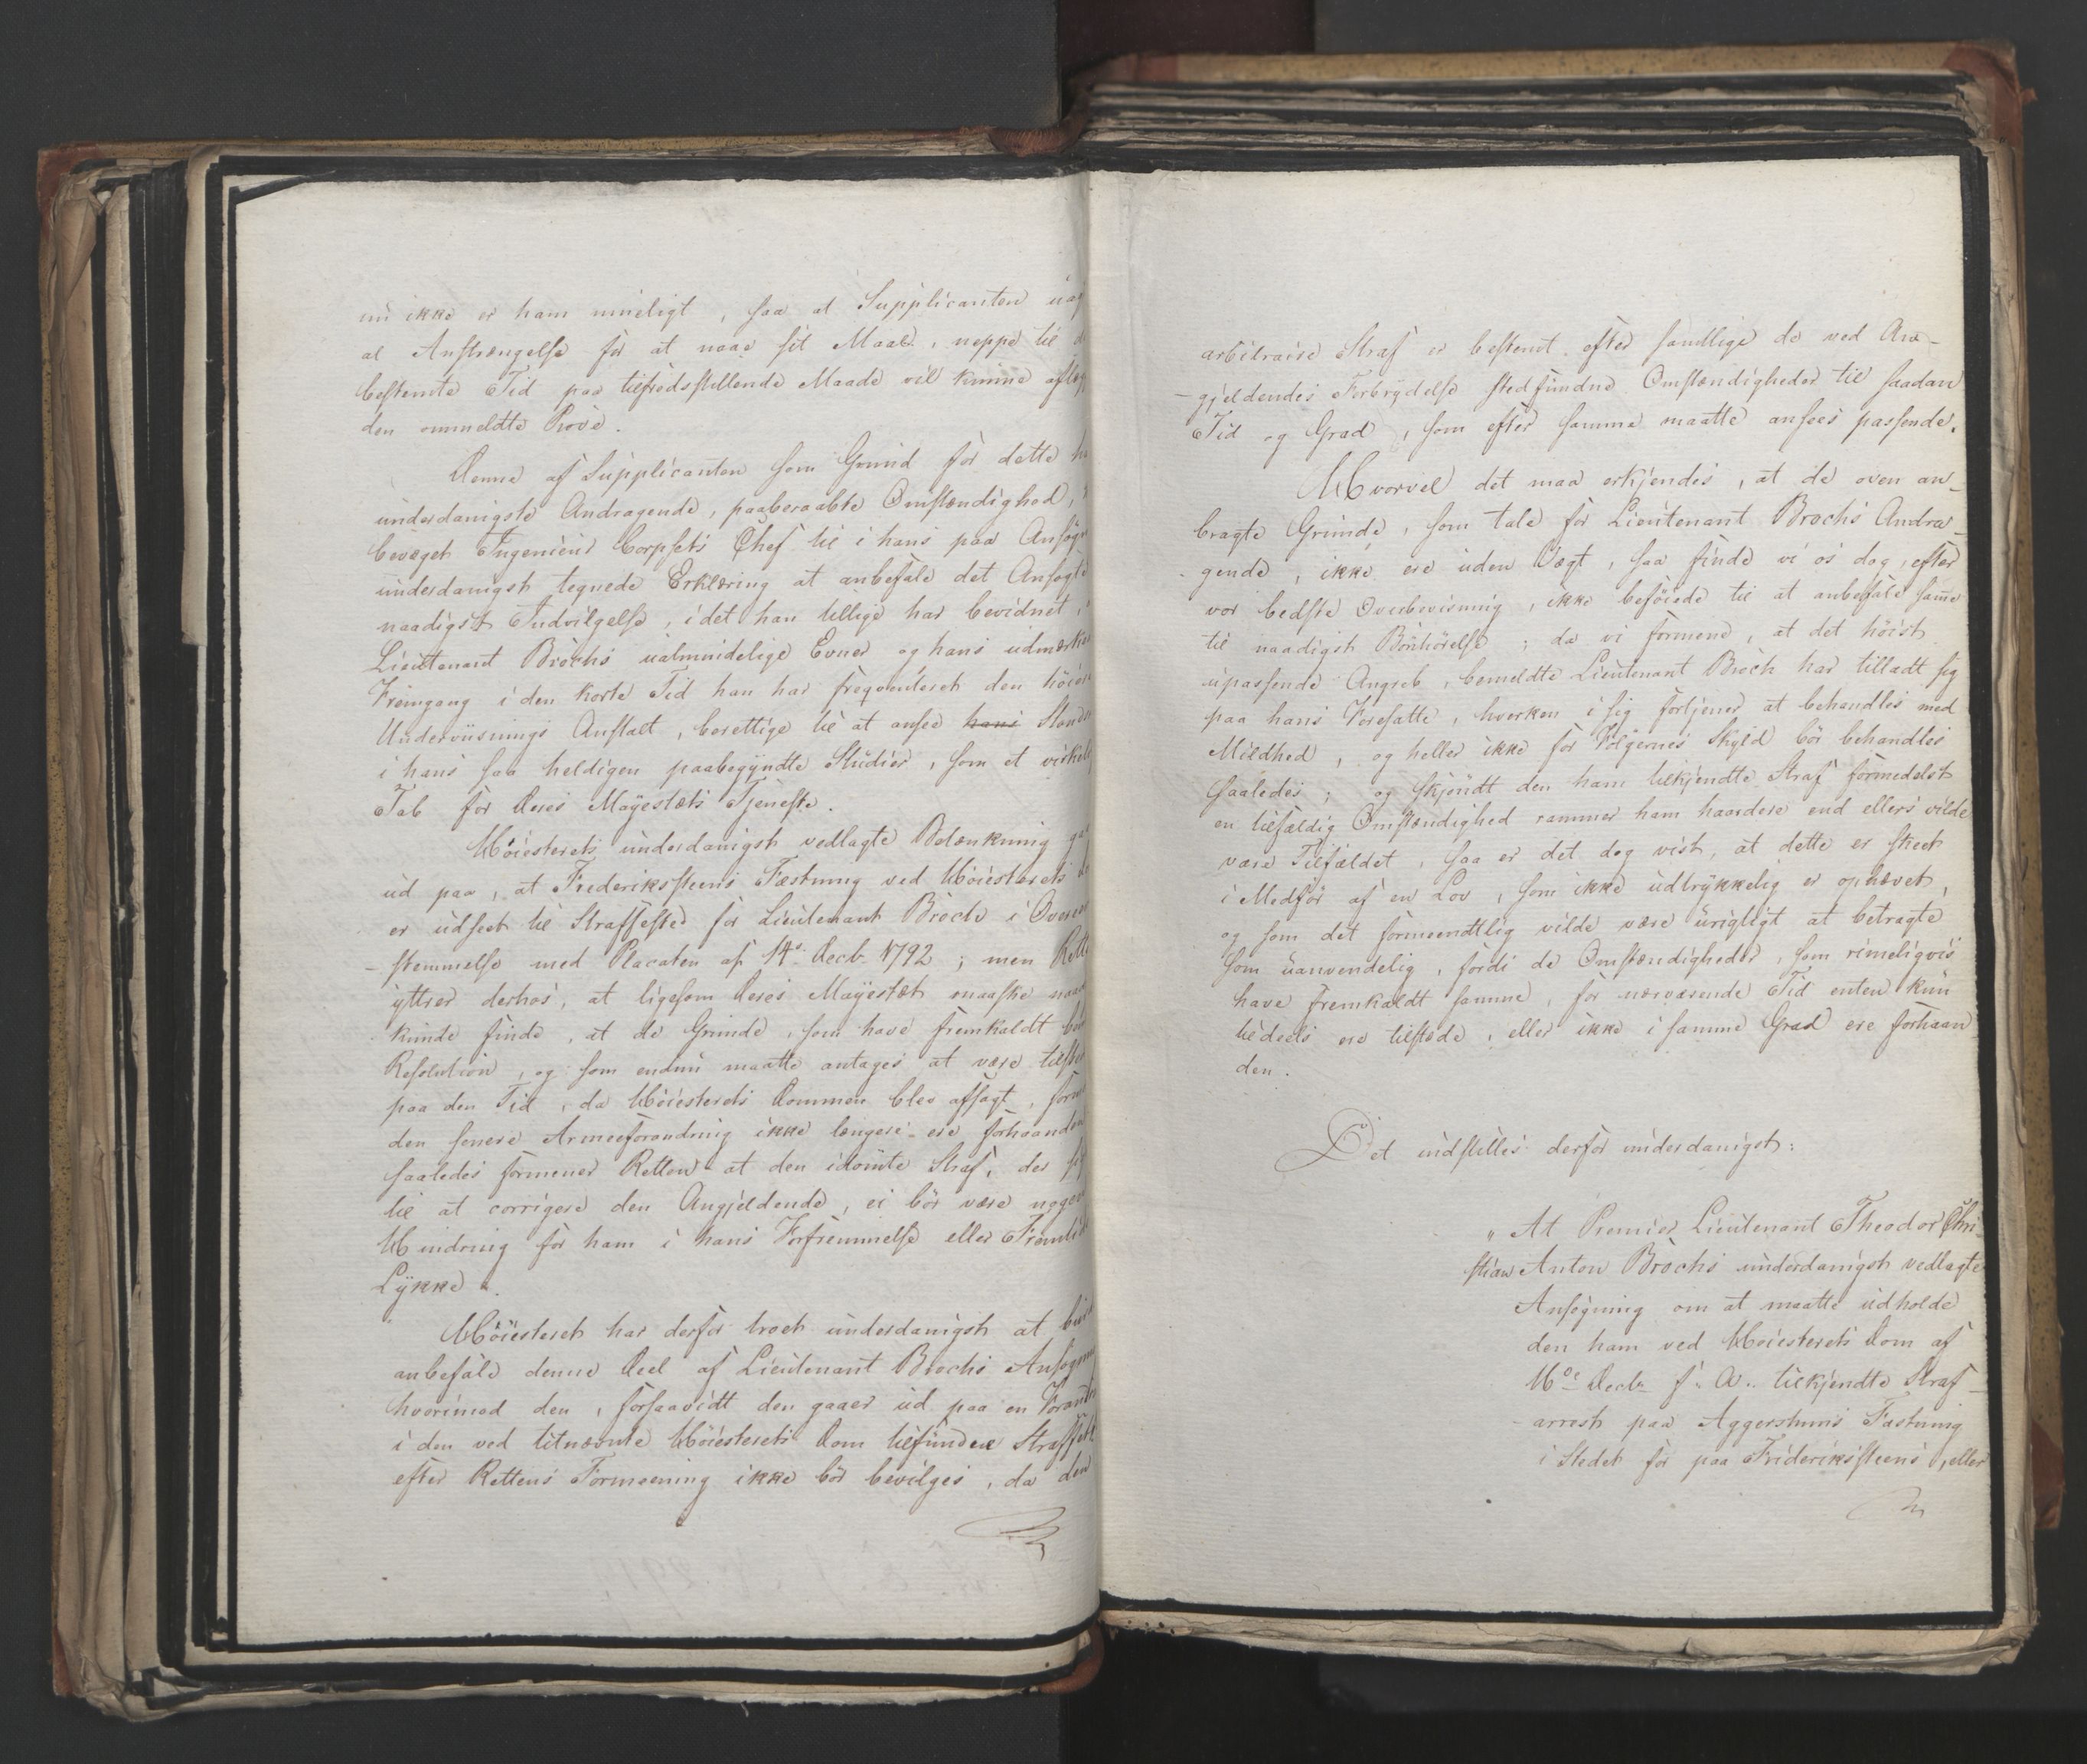 nu ikke er ham mueligt, saa at Supplicanten uag
al Anstrængelse for at naae sit Maal, neppe til d
bestemte Tid paa tilfredsstillende Maade vil kunne aflæg
den ommeldte Prøve.
Denne af Supplicanten som Grund for dette h
underdanigste Andragende, paaberaabte Omstændighed,
bevæget Ingenieur Corpsets Chef til i hans paa Ansøgn
underdanigst tegnede Erklæring at anbefale det Ansøgte
naadigst Indvilgelse, idet han tillige har bevidnet,
Lieutenant Brochs ualmindelige Evner og hans udmærke
Fremgang i den korte Tid han har freqventeret den höiere
Underviisnings Anstalt, berettige til at ansee hans Stands
i hans saa heldigen paabegyndte Studier, som et virkelig
Tab for Deres Majestæts Tjeneste.
Höiesterets underdanigst vedlagte Betænkning gaa
ud paa, at Frederikssteens Fæstning ved Höiesterets D
er udseet til Straffested for Lieutenant Broch i Overeens
-stemmelse med Placaten af 14de Decbr 1792; men Rette
yttrer derhos, at ligesom Deres Majestæt maaskee naad
kunde finde, at de Grunde, som have fremkaldt bem
Resolution, og som endnu maatte antages at være tilsted
paa den Tid, da Höiesterets Dommen blev afsagt, form
den senere Armeeforandring ikke længere ere forhaanden
saaledes formener Retten at den idömte Straf, der sig
til at corrigere den Angjeldende, ei bör være nogen
Hindring for ham i hans Forfremmelse eller Fremtids
Lykke.
Höiesteret har derfor troet underdanigst at bur
anbefale denne Deel af Lieutenant Brochs Ansögning
hvorimod den, forsaavidt den gaaer ud paa en Forandri
i den ved bitnævnte Höiesterets Dom tilfundne Straffest
efter Rettens Formeening ikke bör bevilges, da den
arbitraire Straf er bestemt efter samtlige de ved An-
-gjeldendes Forbrydelse stedfundne Omstændigheder til saadan
Tid og Grad, som efter samme maatte ansees passende.
Hvorvel det maa erkjendes, at de oven an-
bragte Grunde, som tale for Lieutenant Brochs Andra-
-gende, ikke ere uden Vægt, saa finde vi os dog, efter
vor bedste Overbeviisning, ikke beföiede til at anbefale samme
til naadigst Bönhörelse; da vi formene, at det höist
upassende Angreb, bemeldte Lieutenant Broch har tilladt sig
paa hans Foresatte, hverken i sig fortjener at behandles med
Mildhed, og heller ikke for Fölgernes Skyld bör behandles
saaledes; og skjöndt den ham tilkjendte Straf formedelst
en tilfældig Omstændighed rammer ham haardere end ellers vilde
være Tilfældet, saa er det dog vist, at dette er skeet
i Medför af en Lov, som ikke udtrykkelig er ophævet,
og som det formeentlig vilde være urigtigt at betragte
som uanvendelig, fordi de Omstændigheder, som rimeligviis
have fremkaldt samme, for nærværende Tid enten kun
tildeels ere tilstede, eller ikke i samme Grad ere forhaan
den.
Det indstilles derfor underdanigst:
"At Premier Lieutenant Theodor Chri-
stian Anton Brochs underdanigst vedlagte
Ansögning om at maatte udholde
den ham ved Höiesterets Dom af
Decbr f. A. tilkjendte Straf-
-arrest paa Aggershuus Fæstning
i Stedet for paa Frideriksteens, eller